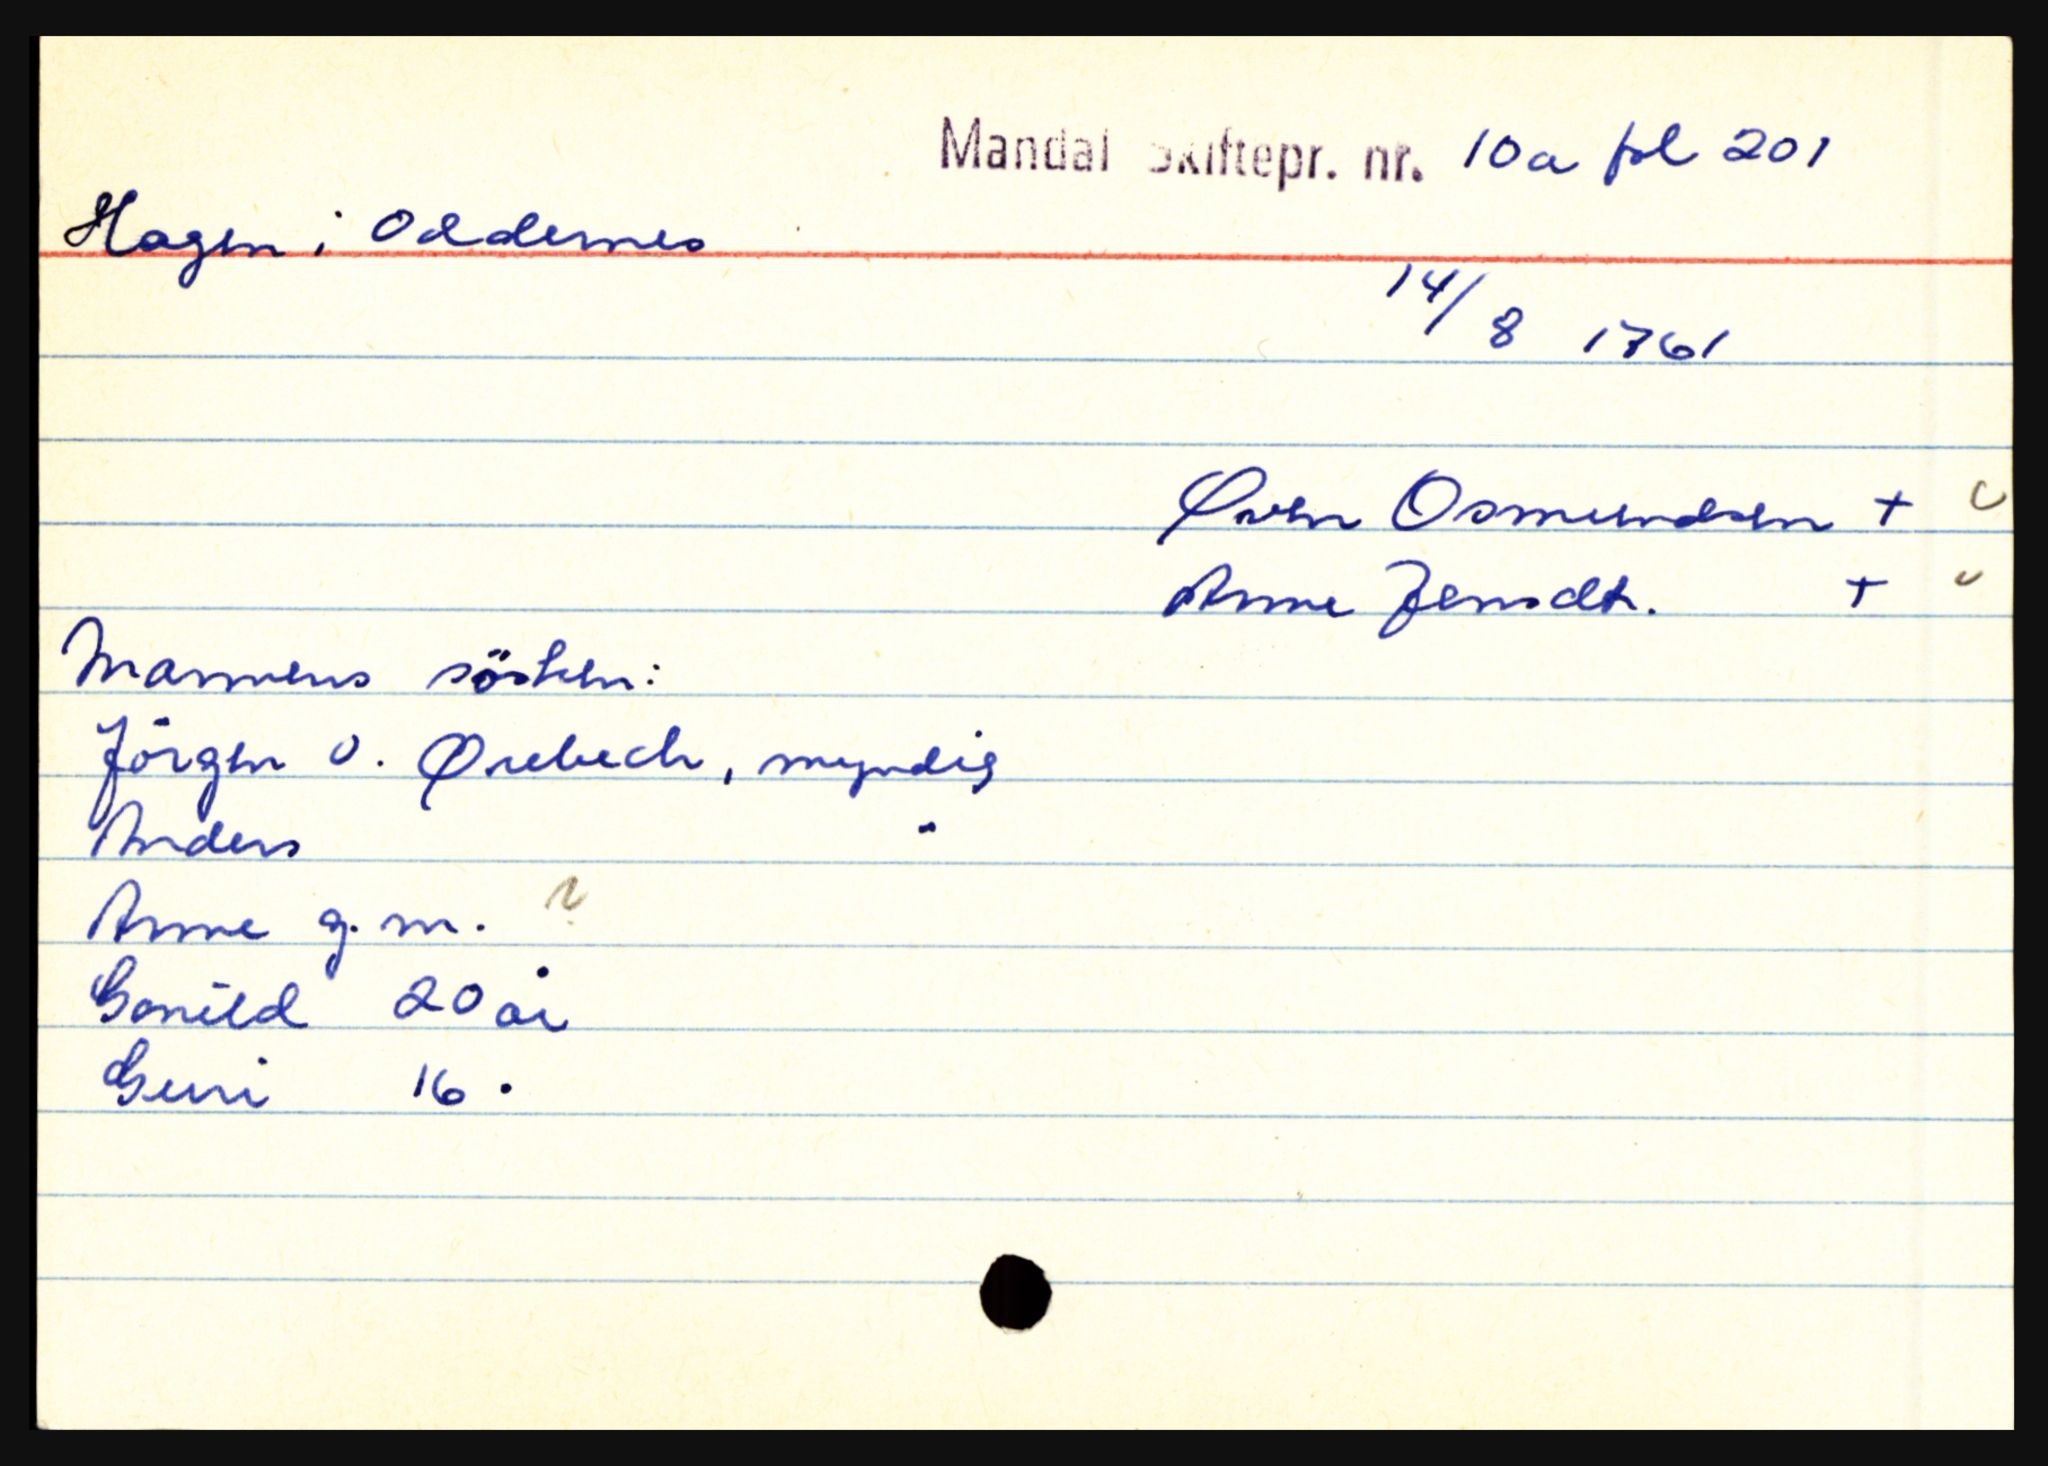 Mandal Skiftepr. nr. 10a fol 201
Hagen i Oddernes
14/8 1761
Øven Osmundsen +
Anne Jensdt. +
Mannens sösken:
Jörgen O. Ørebech, myndig
Anders "
Anne g. m. ?
Gonild 20 år
Guri 16 "